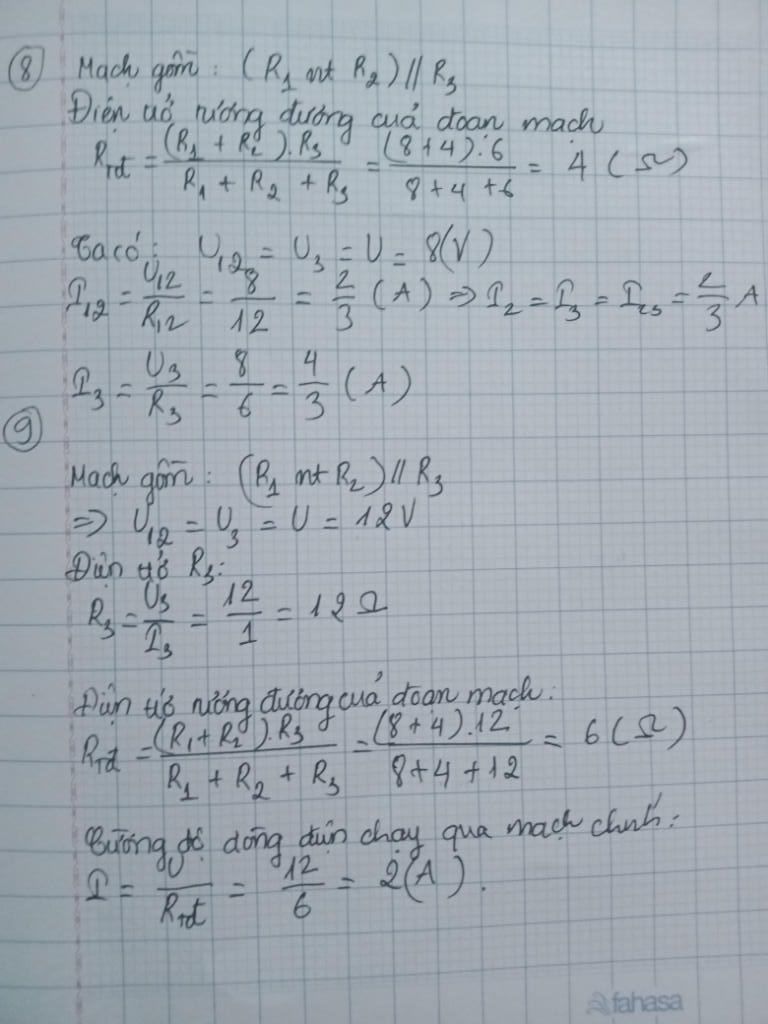 ⑧ Mạch gồm : (R₁ nt R₂) // R₃
Điện trở tương đương của đoạn mạch
Rtđ = (R₁ + R₂).R₃ / R₁ + R₂ + R₃ = (8+4).6 / 8+4+6 = 4 (Ω)
Ta có : U₁₂ = U₃ = U = 8(V)
I₁₂ = U₁₂/R₁₂ = 8/12 = 2/3 (A) => I₂ = I₃ = I₂₃ = 2/3 A
I₃ = U₃/R₃ = 8/6 = 4/3 (A)
⑨
Mạch gồm : (R₁ nt R₂) // R₃
=> U₁₂ = U₃ = U = 12V
Điện trở R₃:
R₃ = U₃/I₃ = 12/1 = 12 Ω
Điện trở tương đương của đoạn mạch :
Rtđ = (R₁+R₂).R₃ / R₁ + R₂ + R₃ = (8+4).12 / 8+4+12 = 6 (Ω)
Cường độ dòng điện chạy qua mạch chính :
I = U/Rtđ = 12/6 = 2(A).
fahasa